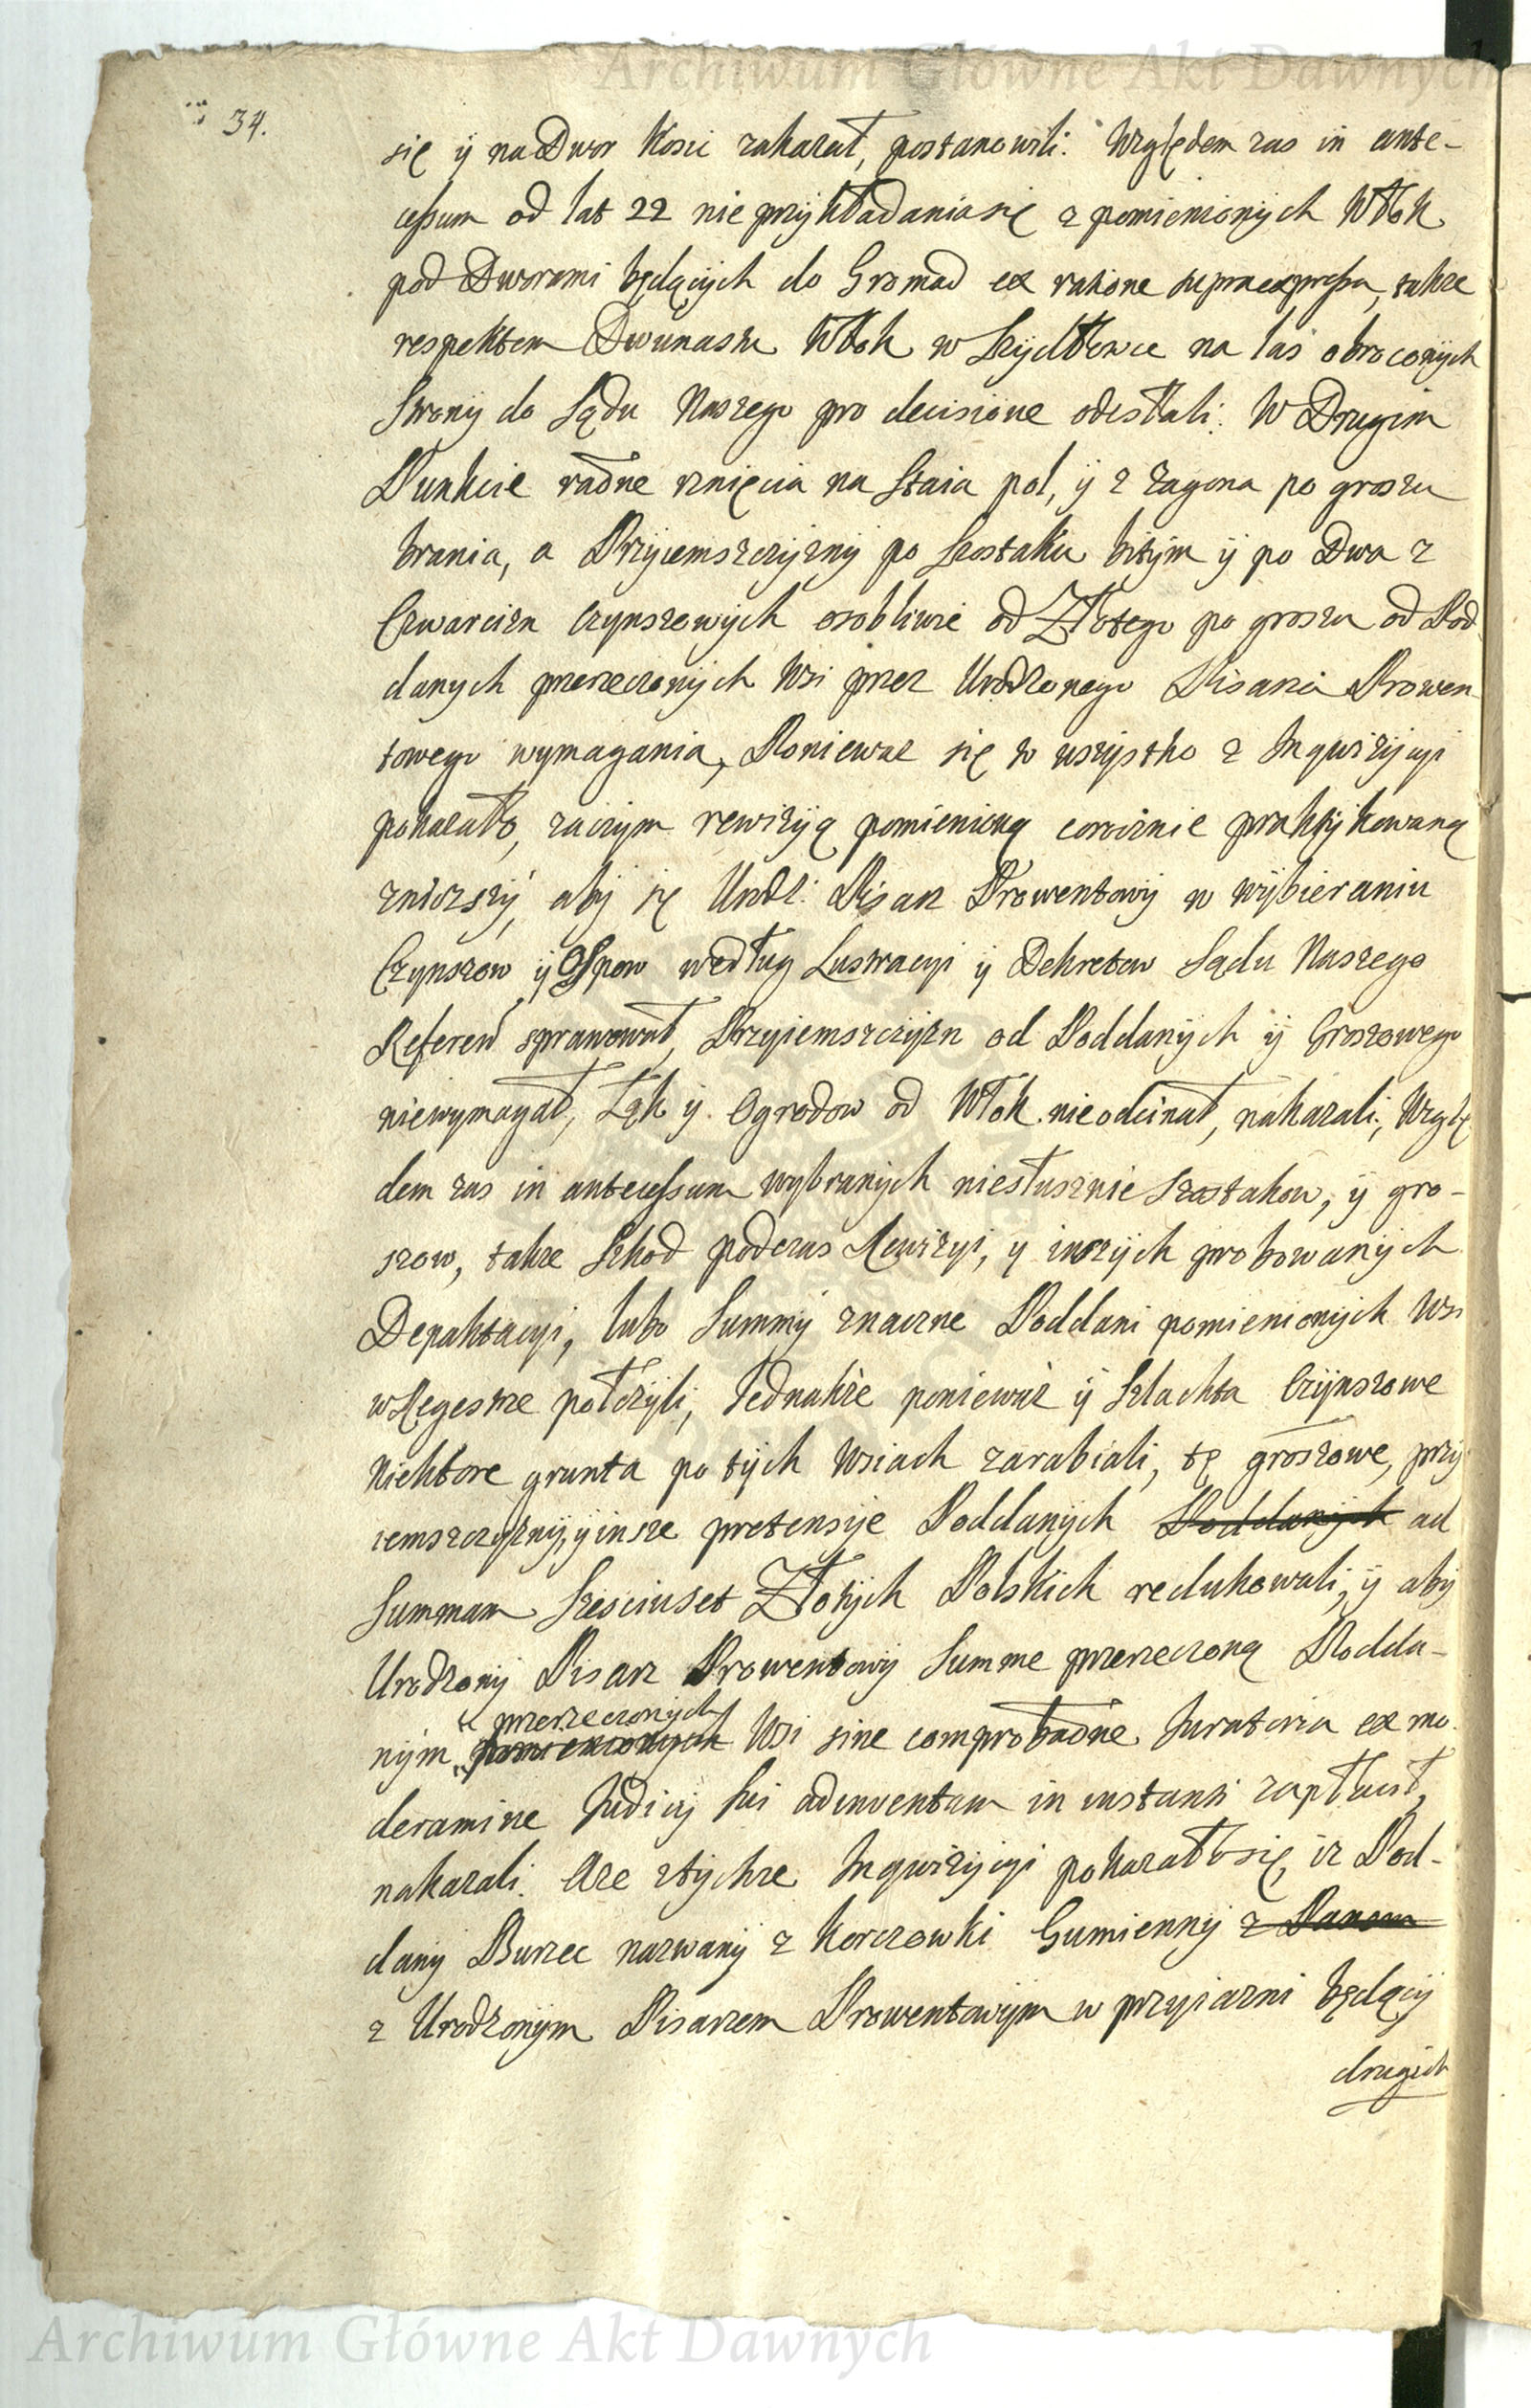 Archiwum Główne Akt Dawnych
34.
się ÿ na Dwor Kosic zakazał, postanowili. Względem zas in ante-
cessum od lat 22 nie przÿkładania się z pomienionÿch Włok
pod Dworami będącÿch do Gromad ex ratione supraexpressa, takze
respektem Dwunastu Włok w Szÿdłowce na las obroconÿch
Stronÿ do Sądu Naszego pro decisione odesłali. W Drugim
Punkcie radne rznięcia na Staia pol, ÿ z zagona po groszu
brania, a Przÿiemszczÿznÿ po Szostaku bitÿm ÿ po Dwa z
Czwarcizn Czÿnszowÿch osobliwie od Złotego po groszu od Pod-
danych przerzeczonÿch Wsi przez Urodzonego Pisarza Prowen-
towego wymagania, Poniewaz się to wszÿstko z Inqwizÿcÿi
pokazało, zaczÿm rewizÿą pomienioną corocznie praktÿkowaną
znioszszÿ, abÿ się Urodz: Pisarz Prowentowÿ w wÿbieraniu
Czÿnszow ÿ Ospow według Lustracÿi ÿ Dekretow Sądu Naszego
Referen̄ sprawował, Przyiemszczÿzn od Poddanÿch ÿ Groszowego
niewymagał, Łąk ÿ Ogrodow od Włok nie odcinał, nakazali; Wzglę
dem zas in antecessum wybranÿch niesłusznie Szostakow, ÿ gro-
szow, takze Szkod podczas Rewizÿi, y inszÿch probowanÿch
Depaktacÿi, lubo Summÿ znaczne Poddani pomienionÿch Wsi
w Regestrze połozÿli, Jednakze poniewaz ÿ Szlachta Czÿnszowe
Niektore grunta po tÿch Wsiach zarabiali, tę groszowe, przÿ
iemszczÿznÿ, ÿ insze pretensÿe Poddanÿch Poddanÿch ad
Summam Szesciuset Złotÿch Polskich redukowali, ÿ abÿ
Urodzonÿ Pisarz Prowentowÿ Summe przerzeczoną Podda-
przerzeczonÿch
nÿm pomienionÿch Wsi sine comprobatione Iuratoria ex mo-
deramine Judicÿ sui adinventam in instanti zapłacił,
nakazali. Aze ztÿchze Inqwizÿcÿi pokazało się, iz Pod-
danÿ Burzec nazwanÿ z Korczowki Gumiennÿ z Panem
z Urodzonÿm Pisarzem Prowentowÿm w przyiazni będącÿ
drugich
Archiwum Główne Akt Dawnych